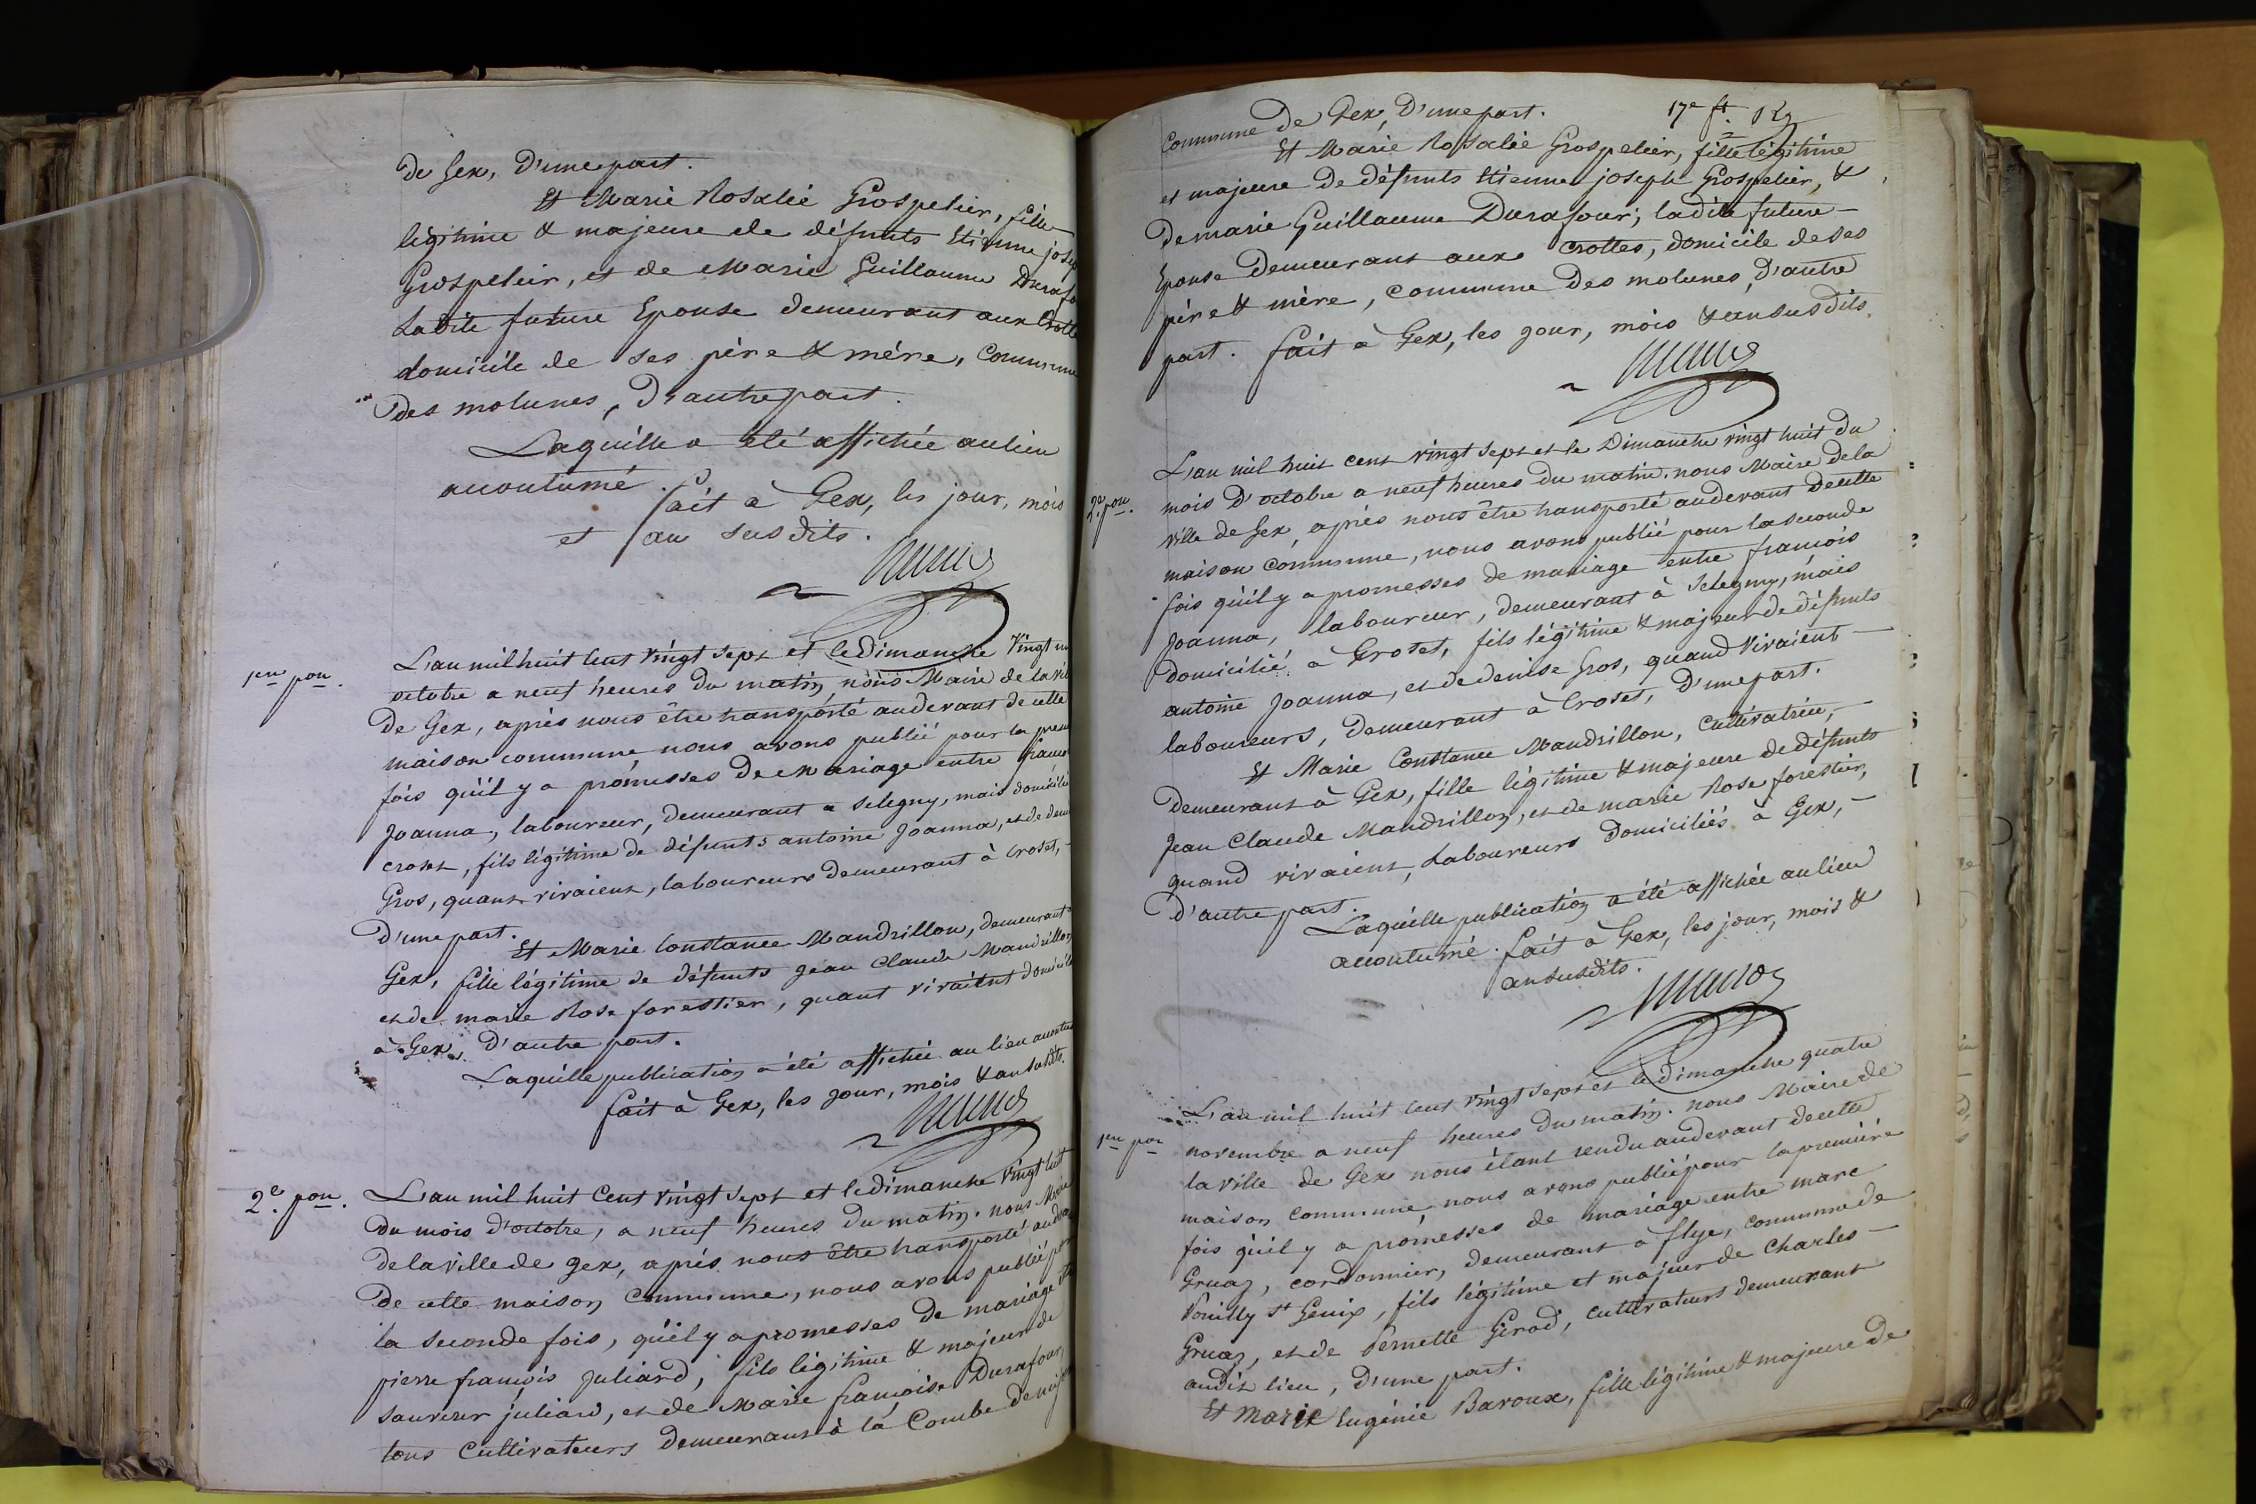 de Gex, D'une part.
Et Marie Rosalie Grospelier, fille
légitime & majeure de défunts Etienne josep
Grospelier, et de Marie Guillaume Durafo
Ladite future Epouse demeurant aux Crotte
domicile de ses père & mère, Commune
des molunes, D'autre part.
Laquélle a été affichée au lieu
accoutumé.
fait à Gex, les jour, mois
et an susdits.
1ere pon.
L'an mil huit Cent Vingt sept et le Dimanche Vingt un
octobre a neuf heures du matin, nous Maire de la vil
De Gex, après nous être transporté au devant de cette
maison commune nous avons publié pour la prem
fois qu'il y a promesses de mariage entre francoi
Joanna, laboureur, demeurant a Selegny, mais domicilié
crozet, fils légitime de défunts antoine Joanna, et de deni
Gros, quant vivaient, laboureurs demeurant à Crozet,
D'une part.
Et Marie Constance Mandrillon, demeurant à
Gex, fille légitime de défunts Jean Claude Mandrillon
et de marie Rose forestier, quant vivaient domicilié
à Gex, D'autre part.
Laquélle publication a été affichée au lieu accoutu
fait à Gex, les jour, mois & an susdits.
2e. pon.
L'an mil huit Cent vingt sept et le dimanche Vingt huit
du mois d'octobre, a neuf heures du matin. nous Maire
de la ville de gex, après nous être transporté au deva
de cette maison Commune, nous avons publié pou
la seconde fois, qu'il y a promesses de mariage
pierre françois Juliard, fils légitime & majeur de
sauveur juliard, et de Marie françoise Durafour
tous Cultivateurs demeurant à la Combe de mij
Commune de Gex, D'une part.
17e ft.
Et Marie Rosalie Grospelier, fille légitime
et majeure de défunts Etienne joseph Grospelier, &
de marie Guillaume Durafour; ladite future
Epouse demeurant aux Crottes, domicile de ses
père & mère, commune des molunes, d'autre
part. fait à Gex, les jour, mois & an susdits.
2e. pon.
L'an mil huit cent vingt sept et le Dimanche vingt huit du
mois d'octobre a neuf heures du matin. nous Maire de la
ville de Gex, après nous être transporté au devant de cette
maison Commune, nous avons publié pour la seconde
fois qu'il y a promesses de mariage entre francois
Joanna, laboureur, demeurant à Selegny, mais
domicilié à Crozet, fils légitime & majeur de défunts
antoine Joanna, et de denise Gros, quand Vivaient
laboureurs, demeurant à Crozet, D'une part.
Et Marie Constance Mandrillon, Cultivatrice,
demeurant à Gex, fille légitime & majeure de défunts
Jean Claude Mandrillon, et de marie Rose forestier,
quand vivaient, Laboureurs domiciliés à Gex,
D'autre part.
Laquélle publication a été affichée au lieu
accoutumé. fait à Gex, les jour, mois &
an susdits.
1ere pon
L'an mil huit Cent vingt sept et le dimanche quatre
novembre a neuf heures du matin. nous Maire de
la ville de Gex nous étant rendu au devant de cette
maison commune, nous avons publié pour la première
fois qu'il y a promesses de mariage entre marc
Gruaz, cordonnier, demeurant à flye, commune de
Pouilly St Genix, fils légitime et majeur de Charles
Gruaz, et de Pernette Girod, cultivateurs demeurant
audit lieu, d'une part.
Et Marie Eugénie Baroux, fille légitime & majeure de